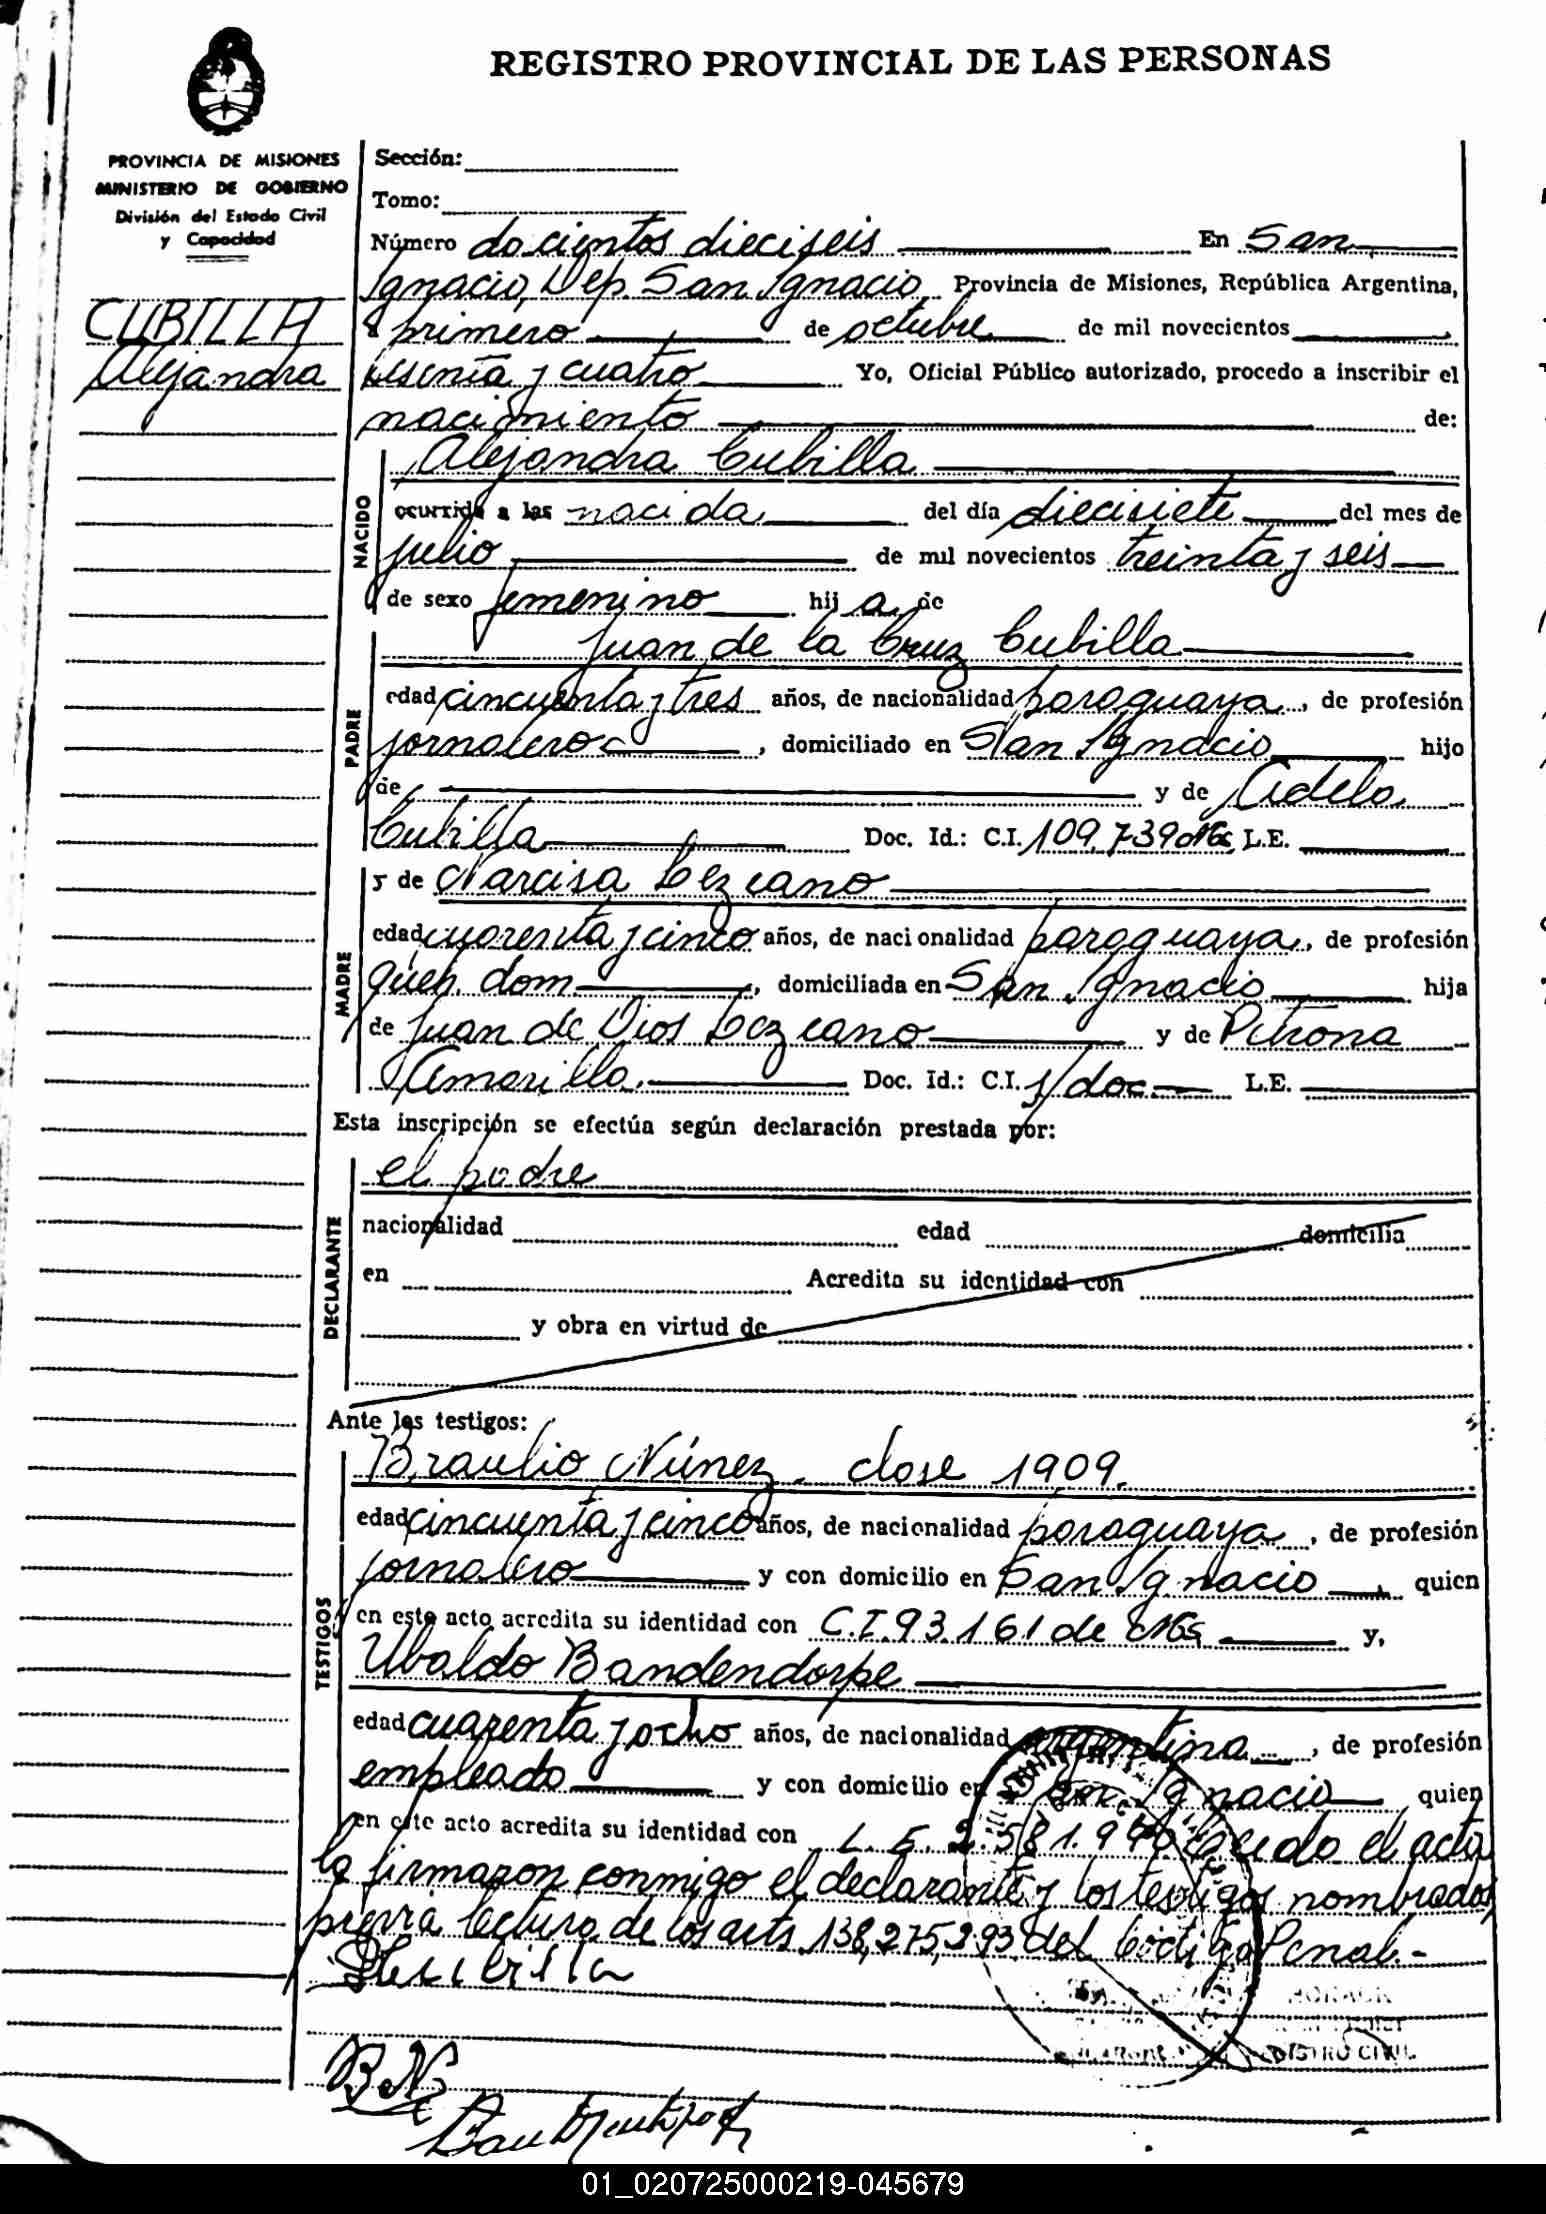 REGISTRO PROVINCIAL DE LAS PERSONAS
PROVINCIA DE MISIONES
MINISTERIO DE GOBIERNO
División del Estado Civil
y Capacidad
CUBILLA
Alejandra
Sección:
Tomo:
Número docientos dieciseis En San
Ignacio, Dep. San Ignacio Provincia de Misiones, República Argentina,
a primero de octubre de mil novecientos
sesenta y cuatro Yo, Oficial Público autorizado, procedo a inscribir el
nacimiento de:
NACIDO
Alejandra Cubilla
ocurrido a las nacida del día diecisiete del mes de
julio de mil novecientos treinta y seis
de sexo femenino hija de
PADRE
Juan de la Cruz Cubilla
edad cincuenta y tres años, de nacionalidad paraguaya, de profesión
jornalero, domiciliado en San Ignacio hijo
de y de Adela
Cubilla Doc. Id.: C.I. 109.739 L.E.
MADRE
y de Narcisa Lezcano
edad cuarenta y cinco años, de nacionalidad paraguaya, de profesión
queh. dom., domiciliada en San Ignacio hija
de Juan de Dios Lezcano y de Petrona
Amarilla Doc. Id.: C.I. s/doc. L.E.
Esta inscripción se efectúa según declaración prestada por:
DECLARANTE
el padre
nacionalidad edad domicilia
en Acredita su identidad con
y obra en virtud de
Ante los testigos:
TESTIGOS
Braulio Núñez. clase 1909.
edad cincuenta y cinco años, de nacionalidad paraguaya, de profesión
jornalero y con domicilio en San Ignacio, quien
en este acto acredita su identidad con C.I. 93.161 de y,
Ubaldo Bandendorpe
edad cuarenta y ocho años, de nacionalidad argentina, de profesión
empleado y con domicilio en San Ignacio quien
en este acto acredita su identidad con L.E. Leido el acta
la firmaron conmigo el declarante y los testigos nombrados
previa lectura de los arts 138,275,293 del Código Penal.-
B.N.
REGISTRO CIVIL
01_020725000219-045679